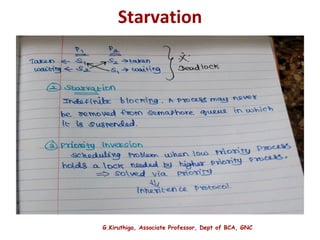 Starvation
P1 P2
Taken ← S1 S2 → taken
waiting ← S2 S1 → waiting
Deadlock
② Starvation
Indefinite blocking. A process may never
be removed from semaphore queue in which
it is suspended.
③ Priority Inversion
scheduling problem when low priority process
holds a lock needed by higher priority process.
⇒ solved via priority
Inheritence protocol
G.Kiruthiga, Associate Professor, Dept of BCA, GNC